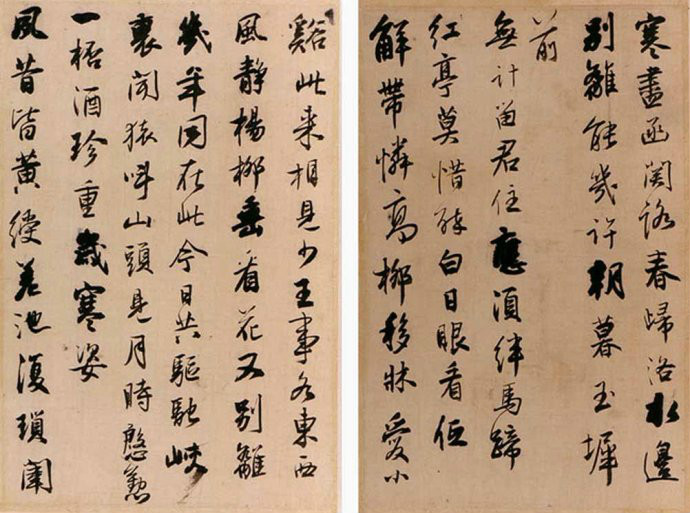 寒盡函関路春歸洛水邊
别離能幾許朝暮玉墀
前
無計留君住應須絆馬蹄
紅亭莫惜醉白日眼看低
解帶憐高柳移牀愛小
谿此来相見少王事各東西
風静楊柳垂看花又别離
幾年同在此今日共驅馳峽
裏闻猿叫山頭見月時慇懃
一桮酒珍重歲寒姿
夙昔皆黄綬差池復瑣闈